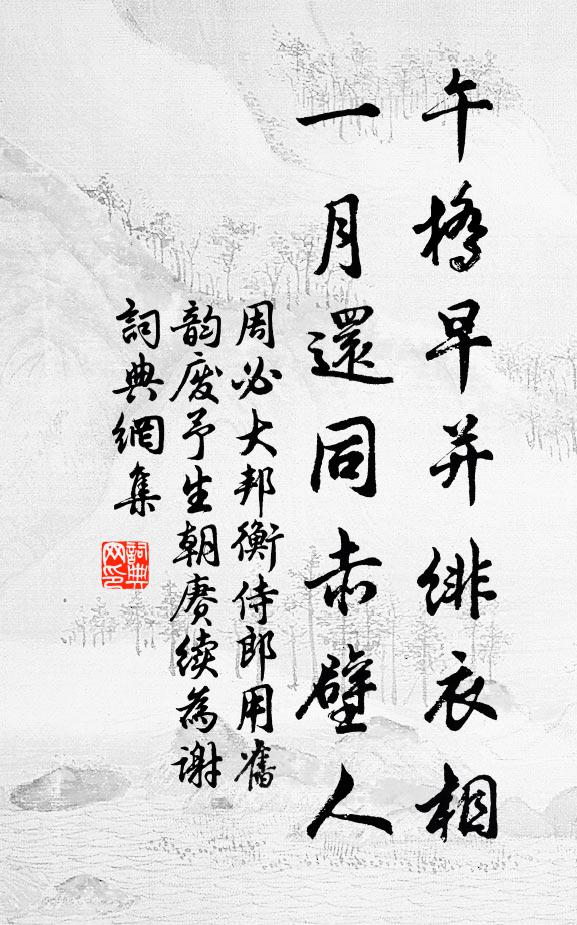 午橋早并緋衣相
一月還同赤壁人
周必大邦衡侍郎用舊
韵廋予生朝賡續為謝
詞典網集
詞典
网印